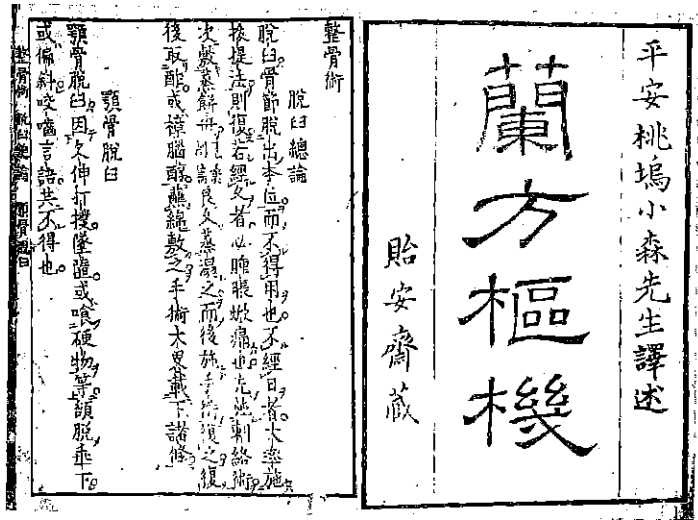 平安桃塢小森先生譯述
蘭方樞機
貽安齋蔵
整骨術
脫臼總論
脫臼骨節脫出本位而不得用也不經日者大率施
按提法則復若經久者必腫脹焮痛也先施刺絡術
次敷蒸餅
良久蒸溫之而後施手術復之復
後取酢或樟腦醇蘸綿敷之手術大畧載下諸條
顎骨脫臼
顎骨脫臼因欠伸打撲墜墮或喰硬物等頷脫垂下
或偏斜咬嚙言語共不得也
整骨術 脫臼總論 顎骨脫臼